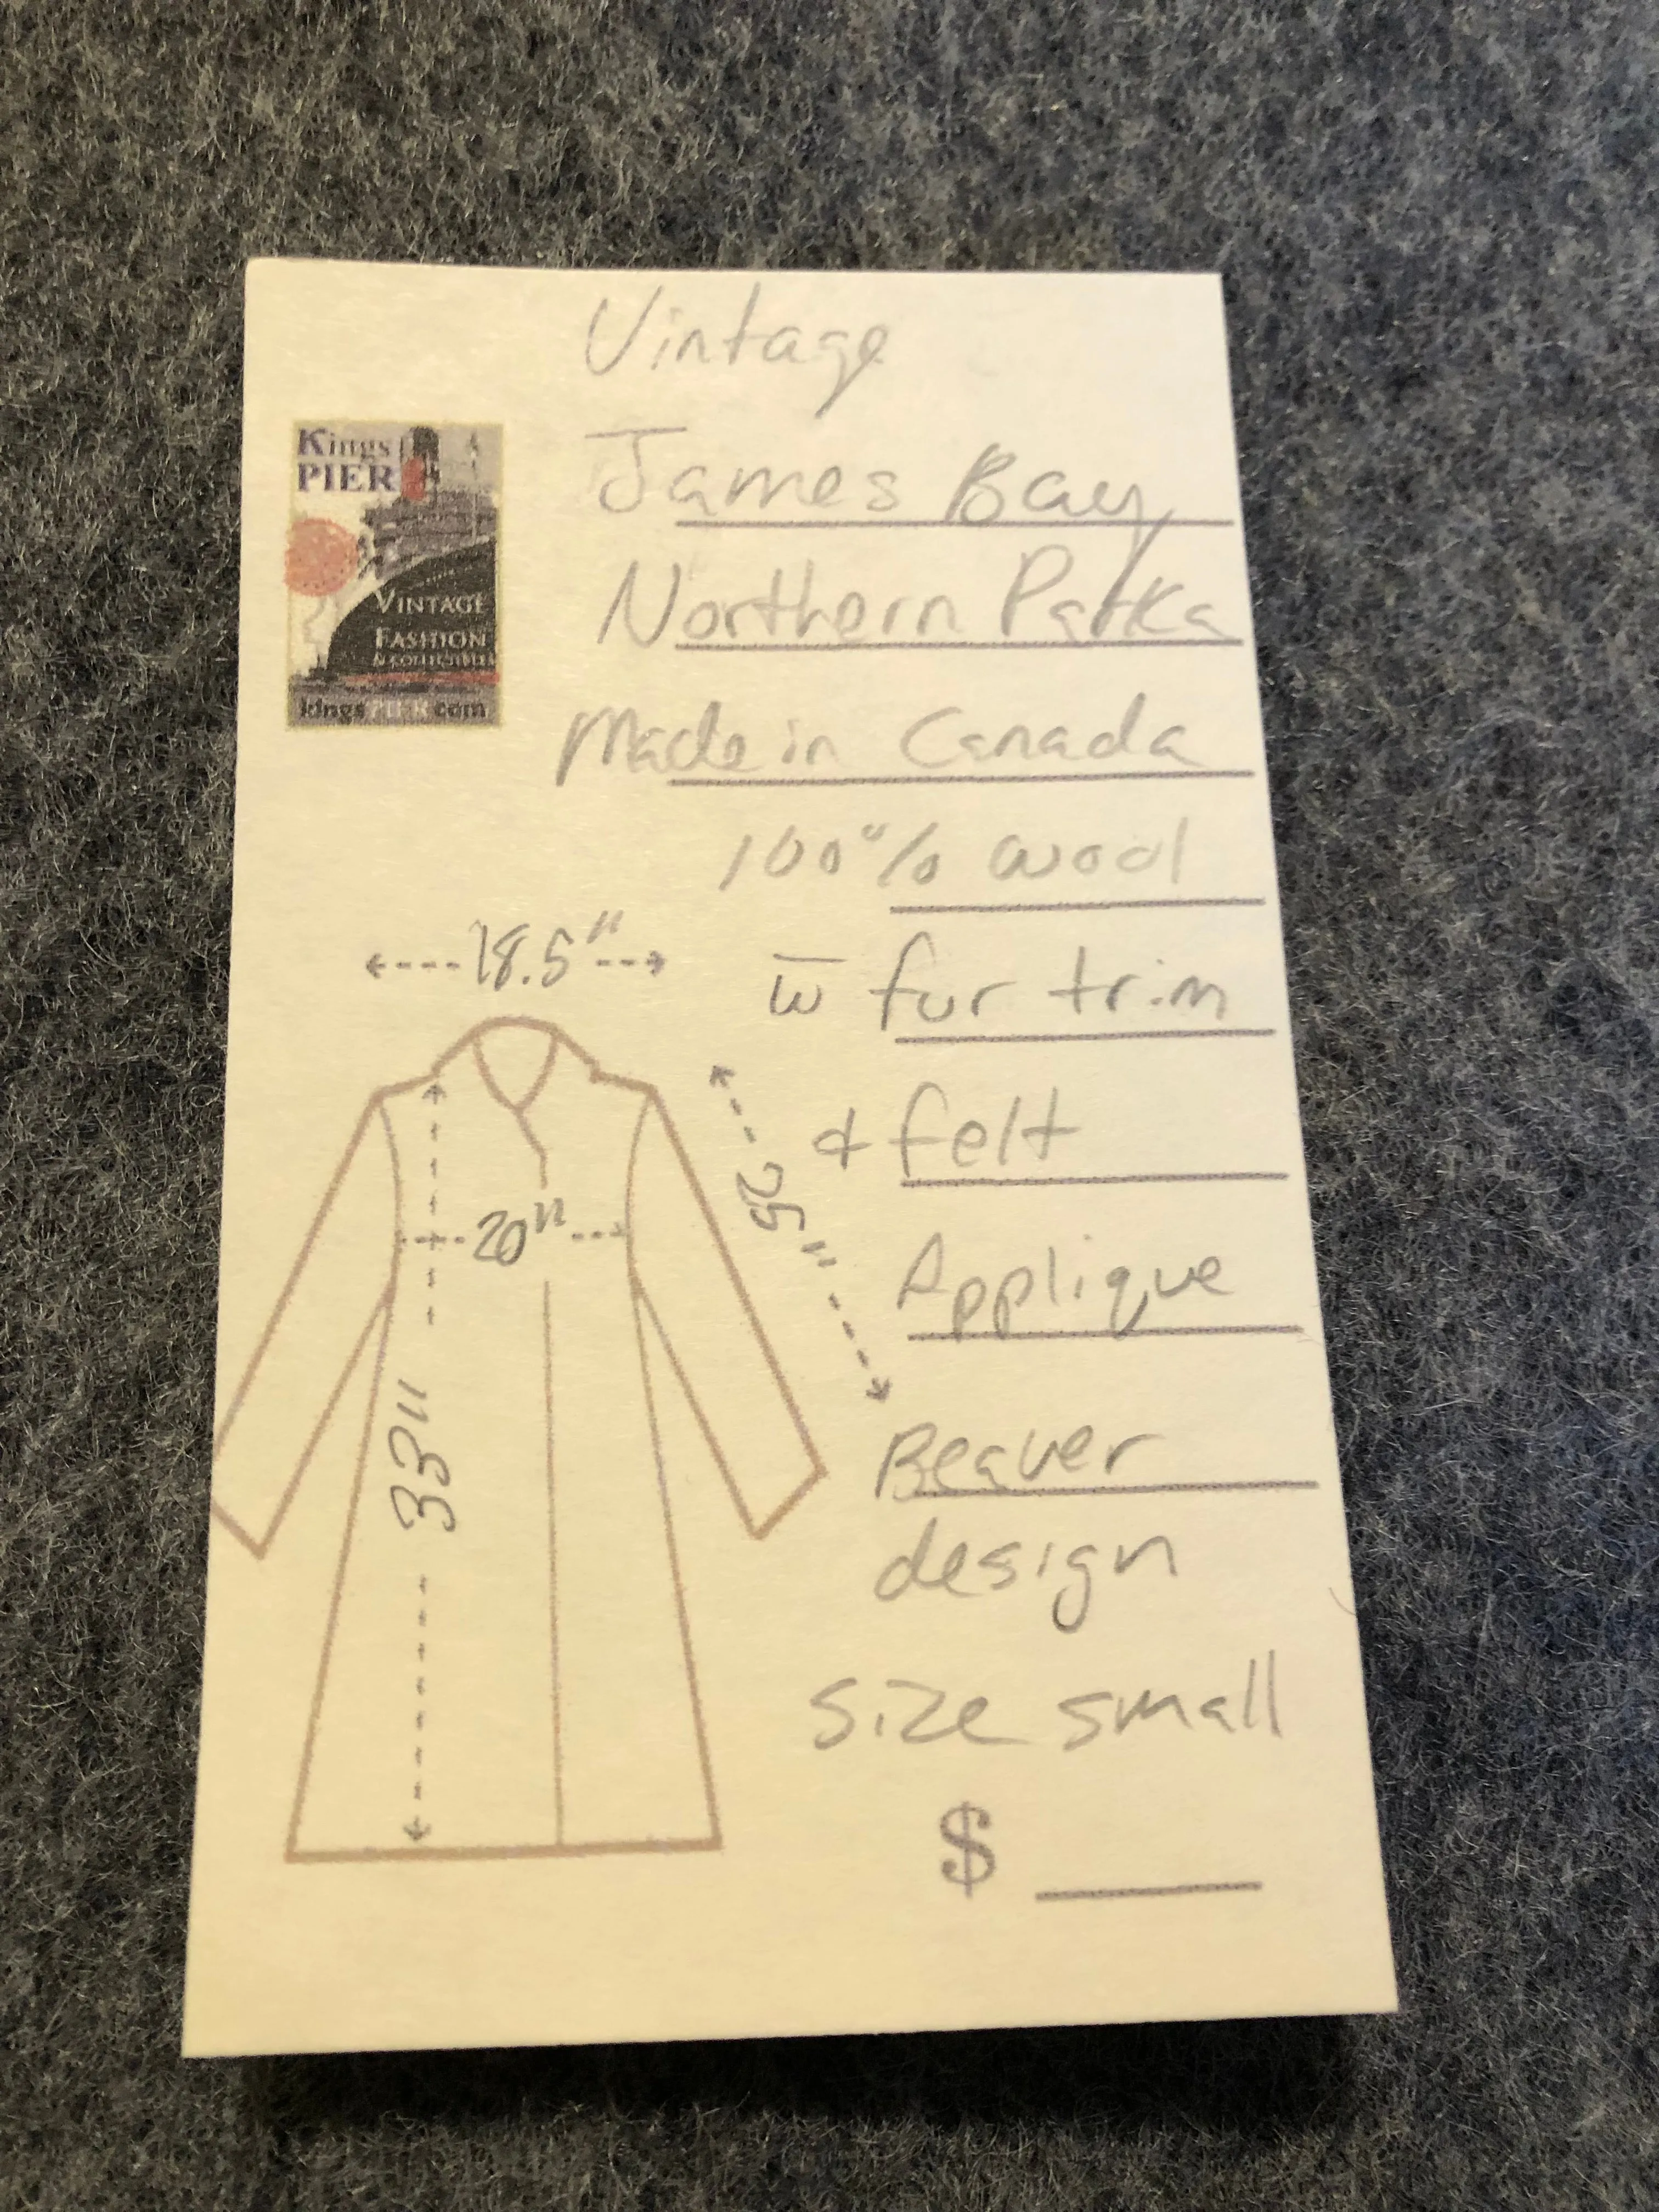 Vintage
Kings
PIER
VINTAGE
FASHION
& COLLECTIBLES
kingspier.com
James Bay
Northern Parka
Made in Canada
100% wool
w̅ fur trim
& felt
Applique
Beaver
design
size small
$
18.5"
20"
25"
33"